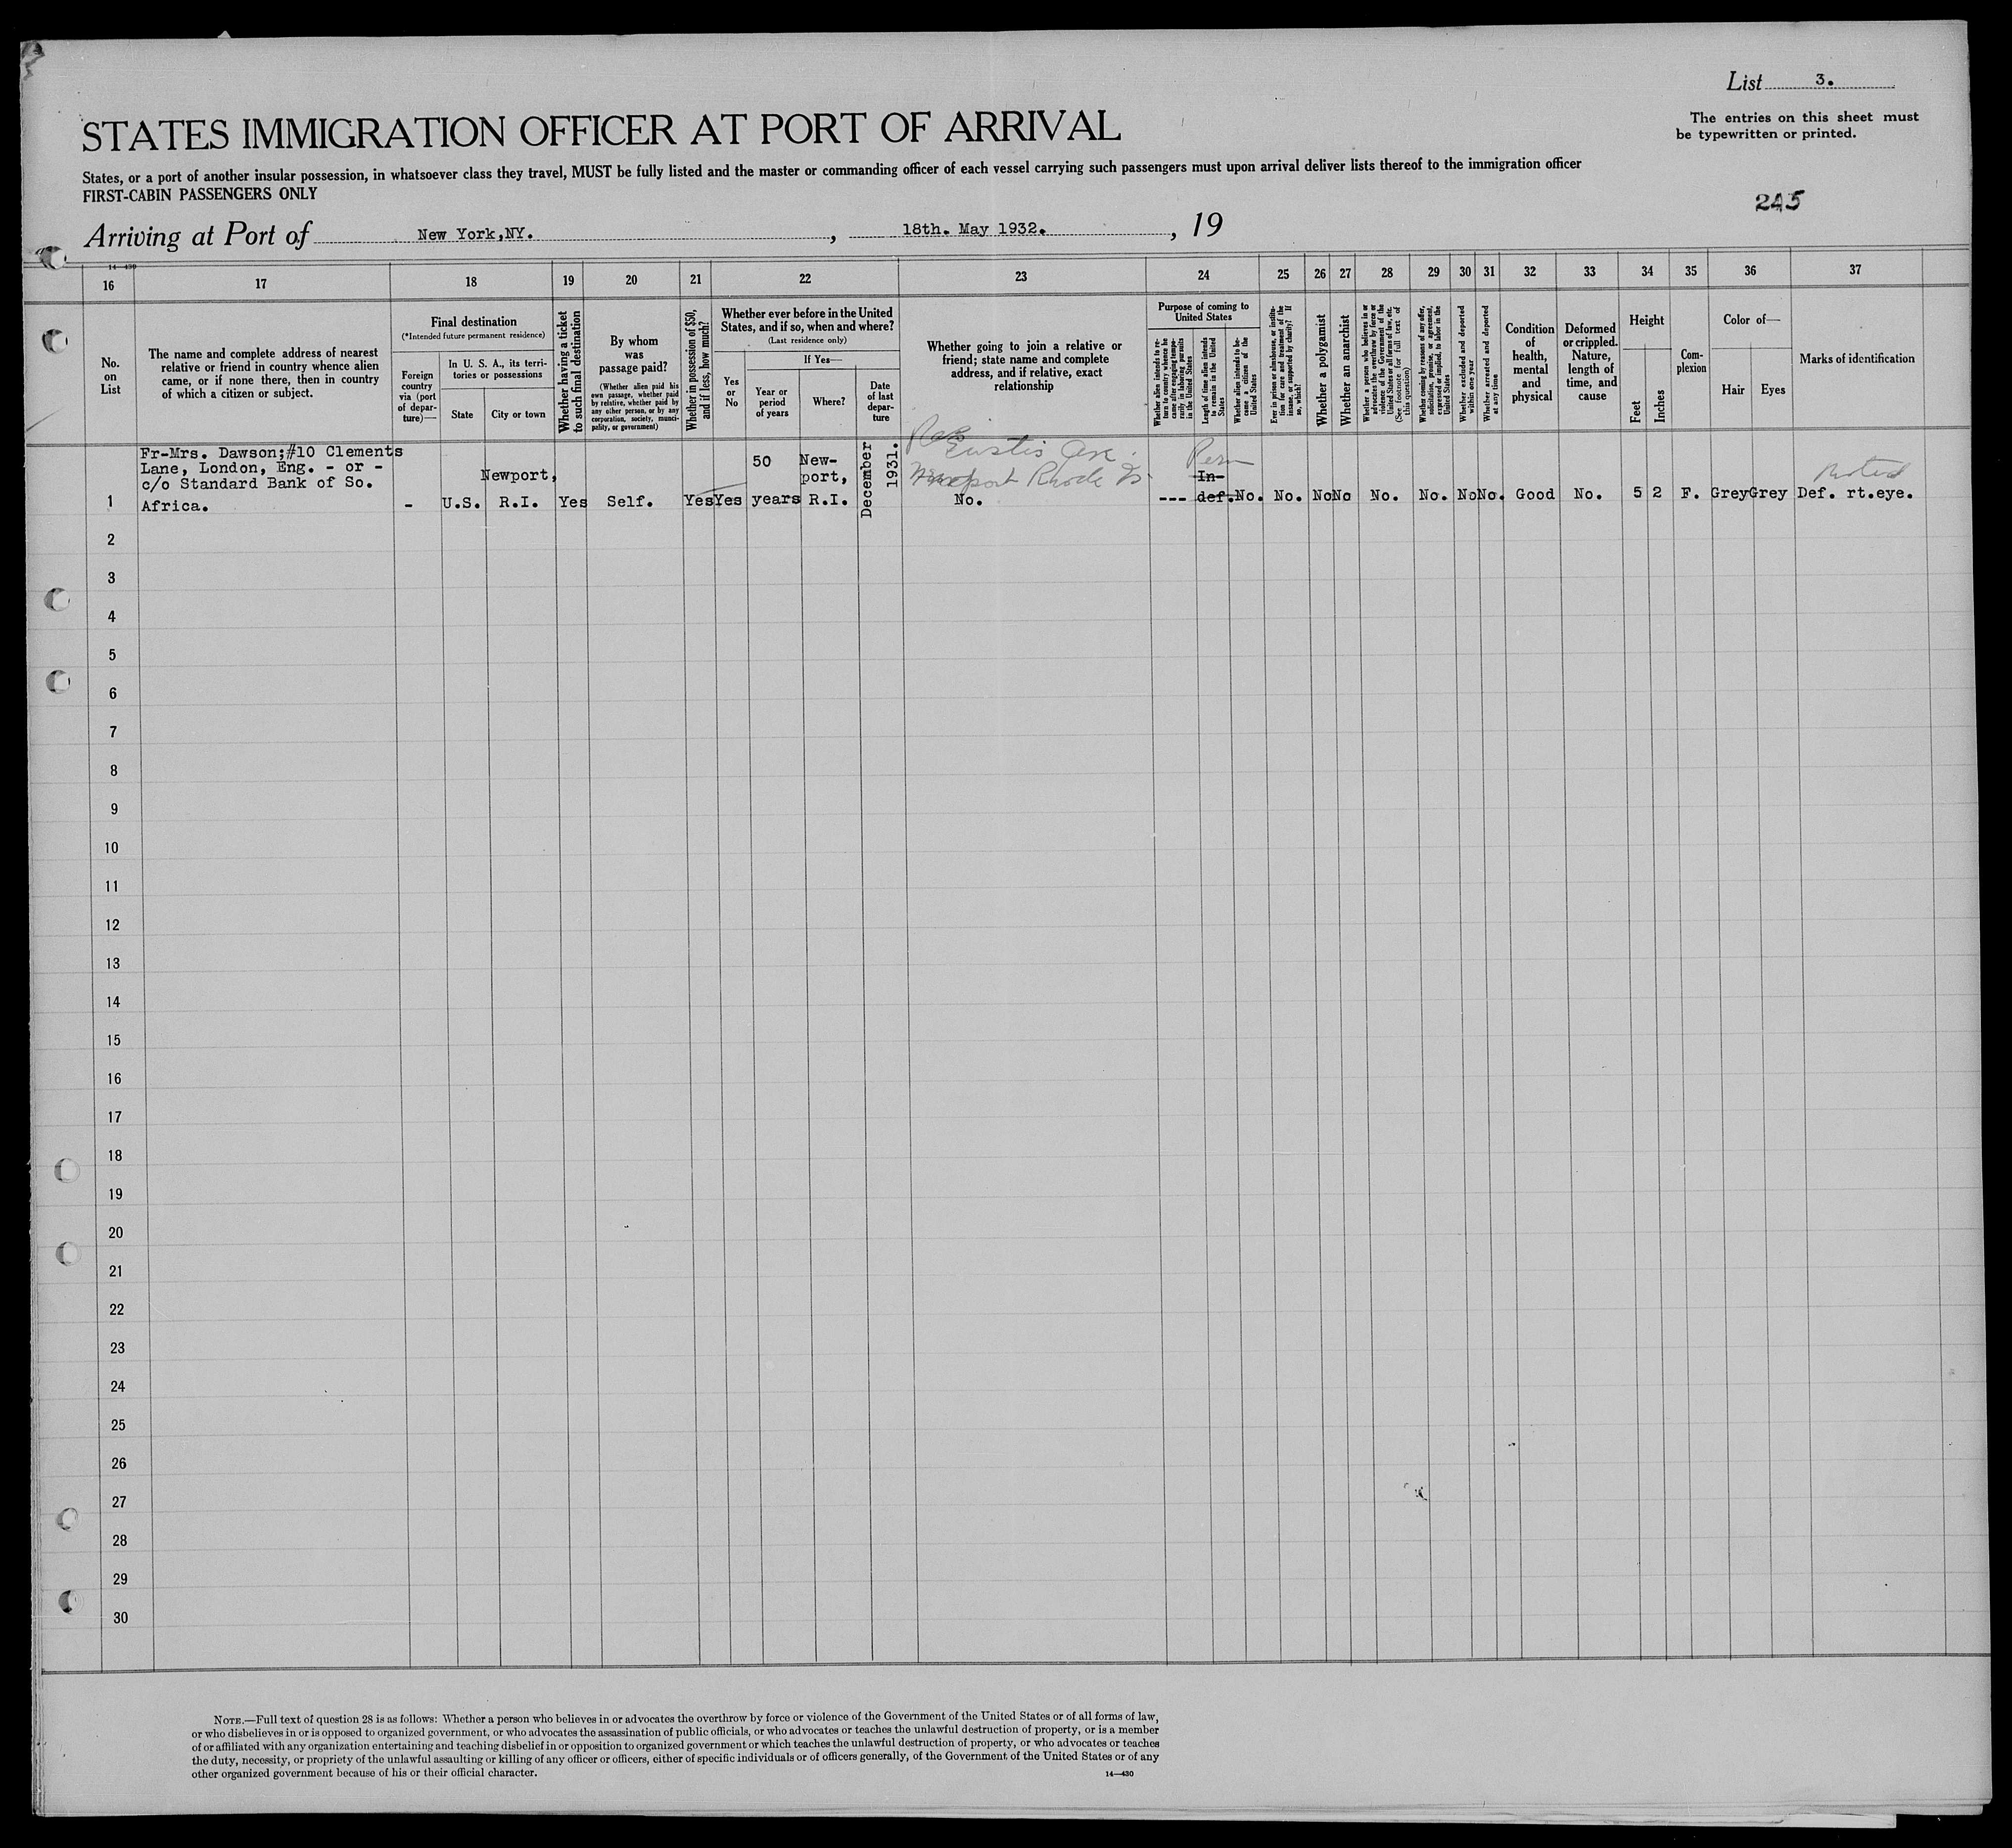 List 3.
The entries on this sheet must
be typewritten or printed.
STATES IMMIGRATION OFFICER AT PORT OF ARRIVAL
States, or a port of another insular possession, in whatsoever class they travel, MUST be fully listed and the master or commanding officer of each vessel carrying such passengers must upon arrival deliver lists thereof to the immigration officer
FIRST-CABIN PASSENGERS ONLY
245
Arriving at Port of New York,NY. , 18th. May 1932. , 19
14—430
16 17 18 19 20 21 22 23 24 25 26 27 28 29 30 31 32 33 34 35 36 37
No.
on
List
The name and complete address of nearest
relative or friend in country whence alien
came, or if none there, then in country
of which a citizen or subject.
Final destination
(*Intended future permanent residence)
Foreign
country
via (port
of depar-
ture)—
In U. S. A., its terri-
tories or possessions
State
City or town
Whether having a ticket
to such final destination
By whom
was
passage paid?
(Whether alien paid his
own passage, whether paid
by relative, whether paid by
any other person, or by any
corporation, society, munici-
pality, or government)
Whether in possession of $50,
and if less, how much?
Whether ever before in the United
States, and if so, when and where?
(Last residence only)
Yes
or
No
If Yes—
Year or
period
of years
Where?
Date
of last
depar-
ture
Whether going to join a relative or
friend; state name and complete
address, and if relative, exact
relationship
Purpose of coming to
United States
Whether alien intends to re-
turn to country whence he
came after engaging tempo-
rarily in laboring pursuits
in the United States
Length of time alien intends
to remain in the United
States
Whether alien intends to be-
come a citizen of the
United States
Ever in prison or almshouse, or institu-
tion for care and treatment of the
insane, or supported by charity? If
so, which?
Whether a polygamist
Whether an anarchist
Whether a person who believes in or
advocates the overthrow by force or
violence of the Government of the
United States or all forms of law, etc.
(See footnote for full text of
this question)
Whether coming by reasons of any offer,
solicitation, promise, or agreement,
expressed or implied, to labor in the
United States
Whether excluded and deported
within one year
Whether arrested and deported
at any time
Condition
of
health,
mental
and
physical
Deformed
or crippled.
Nature,
length of
time, and
cause
Height
Feet
Inches
Com-
plexion
Color of—
Hair
Eyes
Marks of identification
1
Fr-Mrs. Dawson;#10 Clements
Lane, London, Eng. - or -
c/o Standard Bank of So.
Africa.
-
U.S.
Newport,
R.I.
Yes
Self.
Yes
Yes
50
years
New-
port,
R.I.
December
1931.
Eustis Ave.
Newport Rhode Is.
No.
---
Perm
In-
def.
No.
No.
No
No
No.
No.
No
No.
Good
No.
5
2
F.
Grey
Grey
noted
Def. rt.eye.
2
3
4
5
6
7
8
9
10
11
12
13
14
15
16
17
18
19
20
21
22
23
24
25
26
27
28
29
30
NOTE.—Full text of question 28 is as follows: Whether a person who believes in or advocates the overthrow by force or violence of the Government of the United States or of all forms of law,
or who disbelieves in or is opposed to organized government, or who advocates the assassination of public officials, or who advocates or teaches the unlawful destruction of property, or is a member
of or affiliated with any organization entertaining and teaching disbelief in or opposition to organized government or which teaches the unlawful destruction of property, or who advocates or teaches
the duty, necessity, or propriety of the unlawful assaulting or killing of any officer or officers, either of specific individuals or of officers generally, of the Government of the United States or of any
other organized government because of his or their official character.
14—430